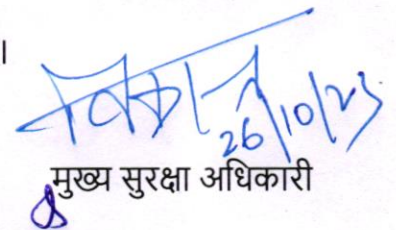 ।
26/10/23
मुख्य सुरक्षा अधिकारी